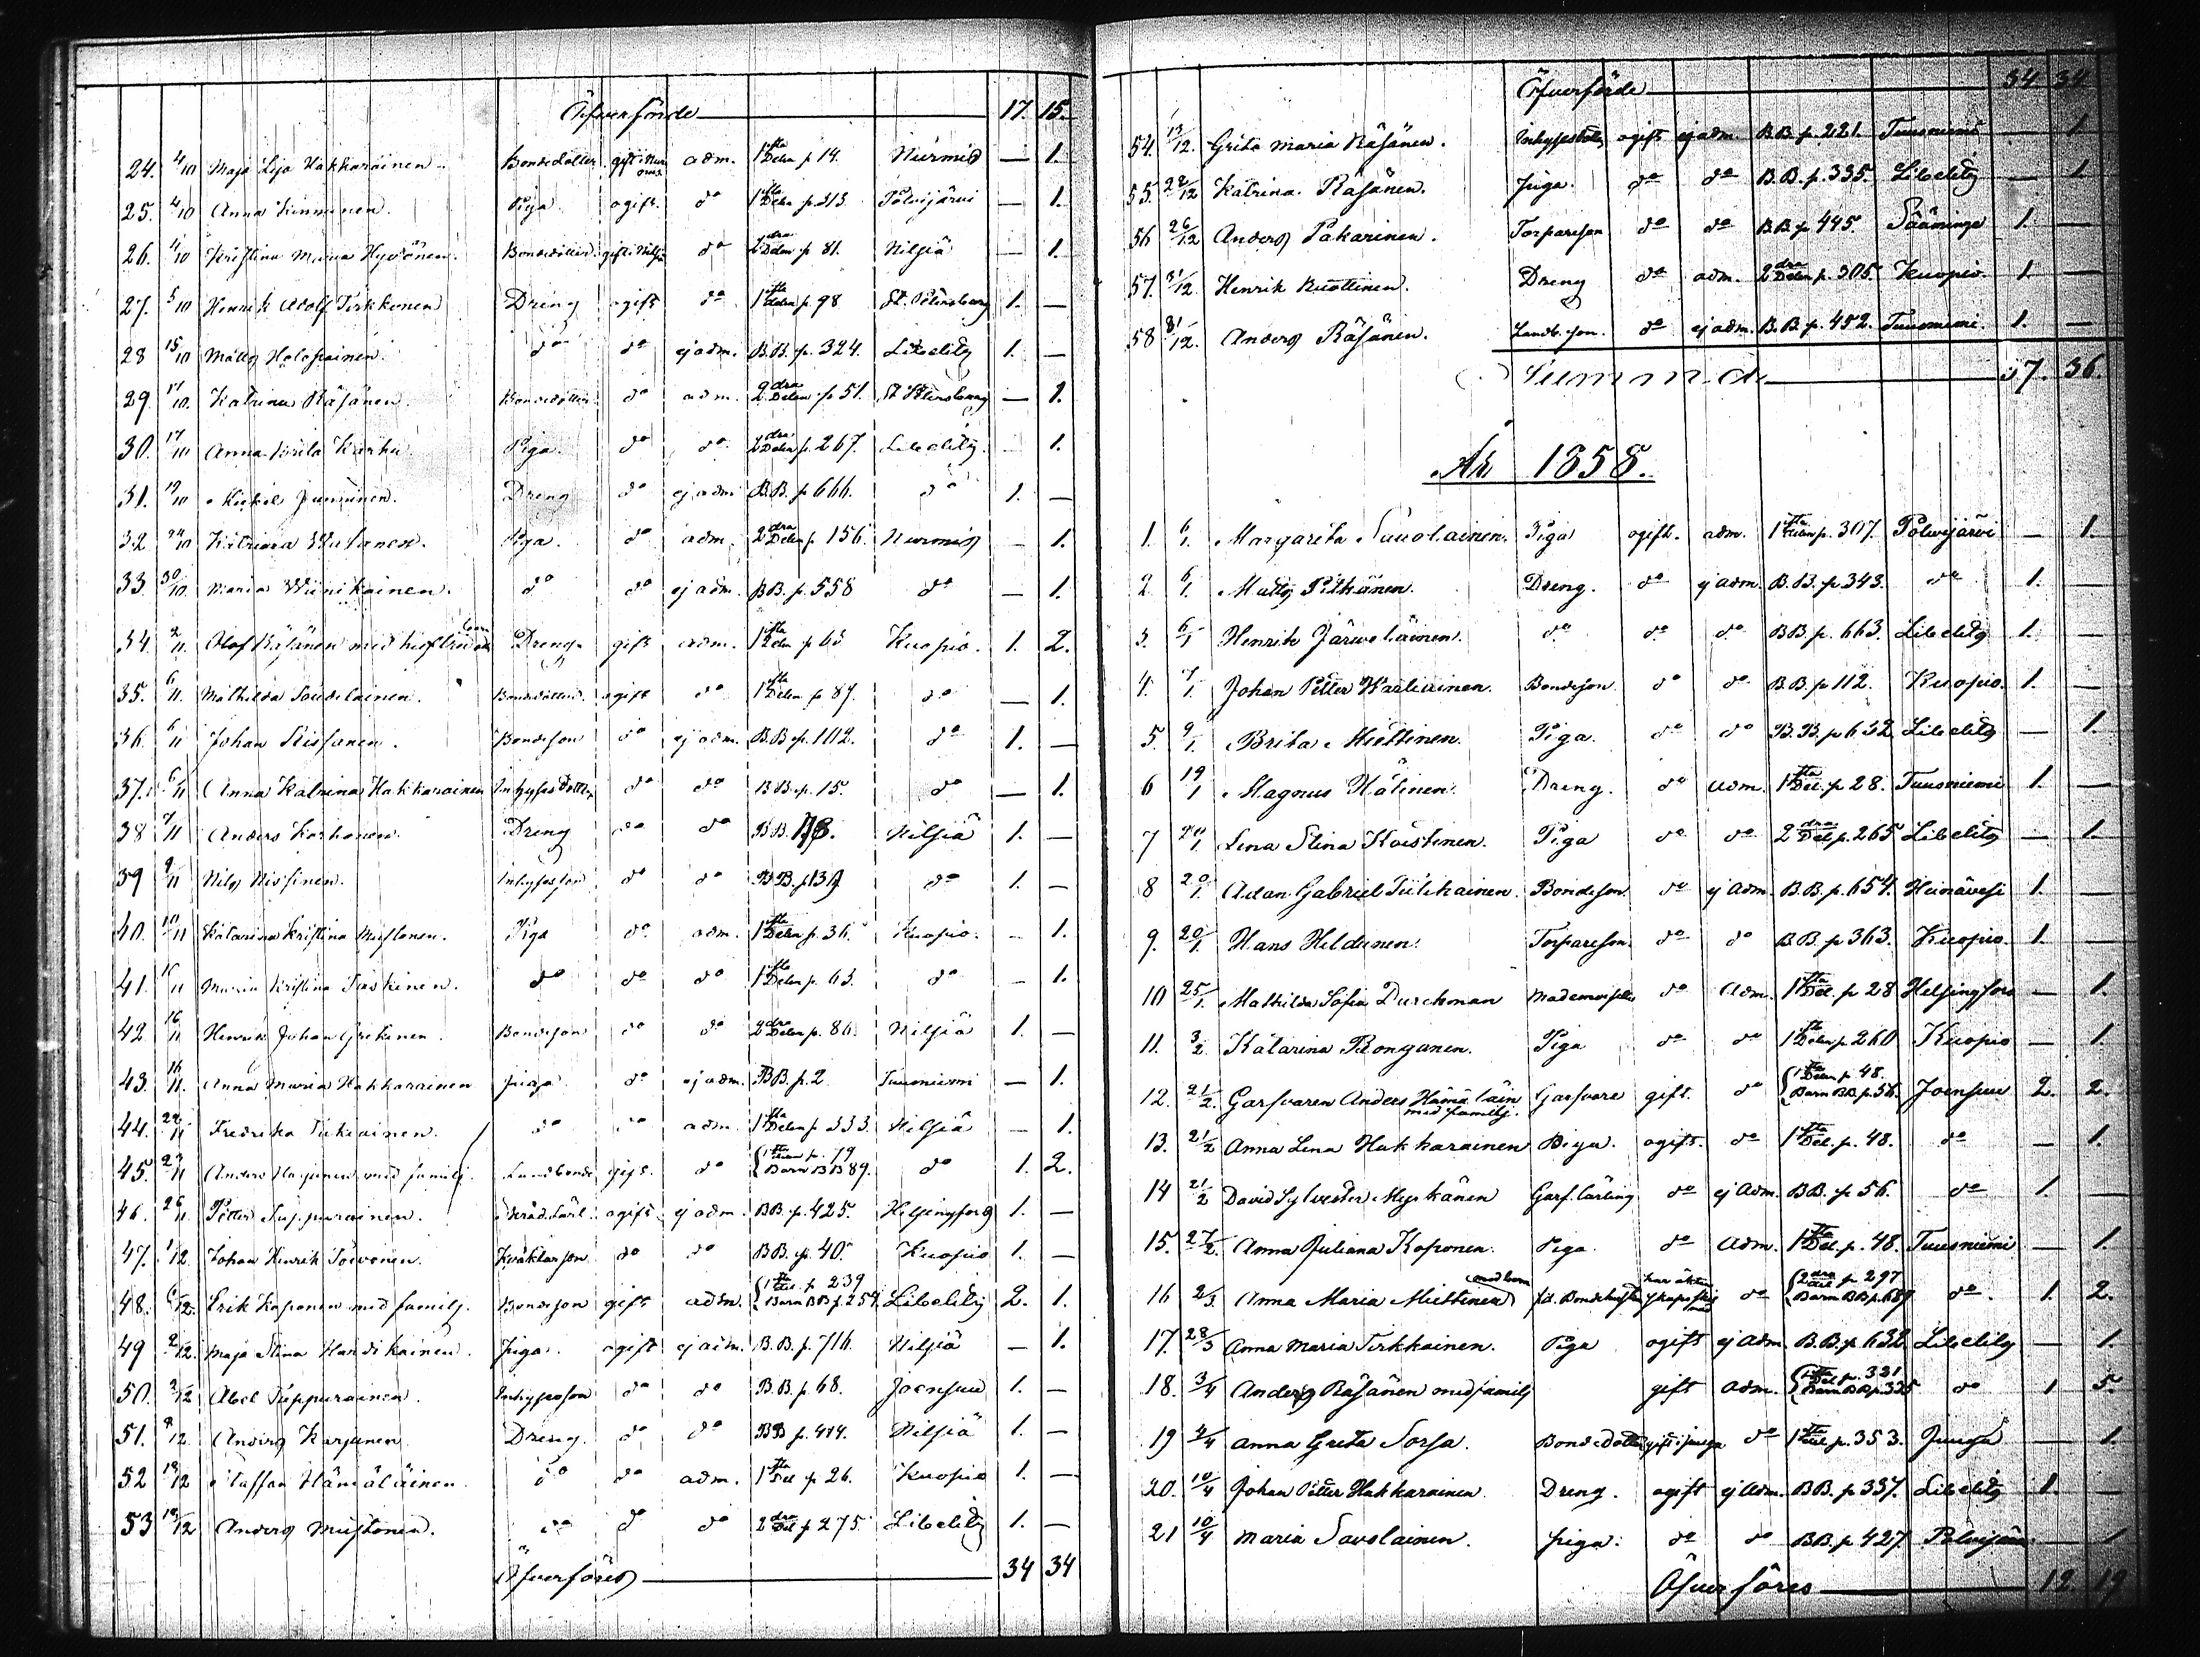 Öfverförde 17. 15.
24. 4/10 Maja Lisa Hakkarainen. Bondedotter gift i Nurmis adm. 1sta Delen p 14. Nurmis — 1.
25. 4/10 Anna Kinnunen. Piga ogift. do 1sta Delen p. 313. Polvijärvi — 1.
26. 4/10 Kristina Maria Hyvönen. Bondedotter gift i Nilsiä do 2dra Delen p 81. Nilsiä — 1.
27. 5/10 Henrik Adolf Tirkkonen Dreng ogift do 1sta Delen p 98 St. Petersburg 1. —
28 15/10 Matts Holopainen. do do ej adm. B.B. p. 324. Libelits 1. —
29 17/10. Katrina Räsänen. Bondedotter do adm. 2dra Delen p 51. St Petersburg — 1.
30. 17/10 Anna Brita Karhu Piga do do 2dra Delen p. 267. Libelits. 1.
31. 19/10 Mikael Junninen. Dreng do ej adm B.B. p 666. do 1. —
32 24/10 Katrina Watanen. Piga. do adm. 2dra Delen p 156. Nurmis — 1.
33 30/10 Maria Wiinikainen. do do ej adm. B.B. p. 558 do — 1.
34. 2/11. Olof Räsänen med hustru och barn Dreng gift adm. 1sta Delen p 63 Kuopio. 1. 2.
35. 6/11. Mathilda Toudelainen. Bondedotter ogift do 1sta Delen p 87. do — 1.
36. 6/11 Johan Rissanen. Bondeson do ej adm. B.B. p. 102. do 1. —
37. 6/11 Anna Katrina Hakkarainen Inhyses dotter do do B.B. p. 15. do — 1.
38 7/11 Anders Korhonen. Dreng do do B.B. Nilsiä 1. —
39 9/11 Nils Nissinen. Inhyseson do do B.B. p 139 do 1. —
40. 10/11 Katarina Kristina Mustonen. Piga do adm. 1sta Delen p. 36. Kuopio. — 1.
41. 11 Maria Kristina Tuskinen. do do do 1sta Delen p. 63. do — 1.
42 16/11 Henrik Johan Bondeson do do 2dra Delen p. 86. Nilsiä 1. —
43. 16/11. Anna Maria Hakkarainen piga do ej adm. B.B. p. 2 Tuusniemi — 1.
44. 22/11 Fredrika Tukiainen. do do adm. 1sta Delen p 333. Nilsiä — 1.
45. 23/11 Anders Karjunen med familj. Landbonde gift. do 1sta Delen p. 79 Barn BB 89. do 1. 2.
46. 26/11. Petter Suppurainen. ogift ej adm. BB. p. 425. Helsingfors 1. —
47. 1/12 Johan Henrik Toivonen. do do BB. p. 40. Kuopio 1. —
48. 6/12. Erik Koponen med familj. Bondeson gift adm. 1sta Del. p 239 Barn BB p. 254. Libelits 2. 1.
49 2/12. Maja Stina Kandikainen. piga. ogift ej adm. B.B. p. 716. Nilsiä — 1.
50. 3/12 Abel Puppurainen. Inhyseson do do B.B. p. 68. Joensuu 1. —
51. 8/12 Anders Karjunen Dreng. do do BB p. 414. Nilsiä 1. —
52 18/12 Staffan Hämäläinen. do do adm. 1sta Del p 26. Kuopio 1. —
53 18/12 Anders Mustonen. do do do 2dra Del p 275. Libelits 1. —
Öfverföres 34 34
Öfverförde 34 34
54. 13/12. Greta Maria Räsänen. Inhysesdotter ogift ej adm. B.B. p. 221. Tuusniemi 1.
55. 22/12 Katrina Räsänen. piga. do do B.B. p. 335. Libelits — 1.
56 26/12 Anders Pakarinen. Torpareson do do B.B. p 445. Sääminge 1. —
57. 31/12. Henrik Ruottinen. Dreng do adm. 2dra Delen p. 305. Kuopio. 1. —
58 31/12. Anders Räsänen. Landb. son. do ej adm. B.B. p. 452. Tuusniemi. 1. —
Summa 37. 36.
År 1858.
1. 6/1. Margareta Savolainen. Piga ogift. adm. 1sta Delen p. 307. Polvijärvi — 1.
2. 6/1. Matts Pitkänen. Dreng. do ej adm. B.B. p 343. do 1. —
3. 6/1 Henrik Järvelainen. do do do BB p. 663. Libelits 1. —
4. 7/1. Johan Petter Karkainen. Bondeson. do do B.B. p 112. Kuopio. 1. —
5 9/1. Brita Miettinen. Piga. do do B.B. p 632 Libelits — 1.
6 19/1 Magnus Hätinen. Dreng. do adm. 1sta Del. p 28. Tuusniemi 1. —
7 20/1 Lena Stina Koistinen. Piga do do 2dra Del p. 265 Libelits — 1.
8 20/1. Adam Gabriel Tiilikainen. Bondeson do ej adm. B.B. p. 654. Heinävesi 1. —
9. 20/1 Hans Hildunen. Torpareson. do do B.B. p 363. Kuopio. 1. —
10 25/1. Mathilda Sofia Durchman Mademoiselle do adm. 1sta Del. p 28 Helsingfors — 1.
11. 3/2. Katarina Ronganen. Piga do do 1sta Delen p 260 Kuopio — 1.
12. 21/2. Garfvaren Anders Hämäläin med familj. Garfvare gift. do 1sta Delen p. 48. Barn BB. p. 56. Joensuu 2. 2.
13. 21/2 Anna Lena Hakkarainen Piga. ogift. do 1sta Del. p. 48. do — 1.
14 21/2 David Sylvester Myykänen Garf. lärling do ej adm. BB. p 56. do 1. —
15. 27/2. Anna Juliana Koponen. Piga do adm. 1sta Del. p. 48. Tuusniemi — 1.
16 2/3 Anna Maria Miettinen med barn do 2dra del p 297 Barn BB p. 689 do. 1. 2.
17. 28/3 Anna Maria Tirkkainen. Piga ogift ej adm. B.B. p 632 Libelits — 1.
18. 3/4 Anders Räsänen med familj gift adm. 1sta Del p. 331 Barn BB p 325 do 1 5.
19 2/4 Anna Greta Sorsa. Bondedotter gift i Juuga do 1sta Del p. 353. Juuga — 1
20. 10/4 Johan Petter Hakkarainen Dreng. ogift ej adm. BB. p 337. Libelits 1. —
21 10/4 Maria Savolainen. piga. do do BB. p 427 Polvijärvi — 1
Öfverföres 12. 19